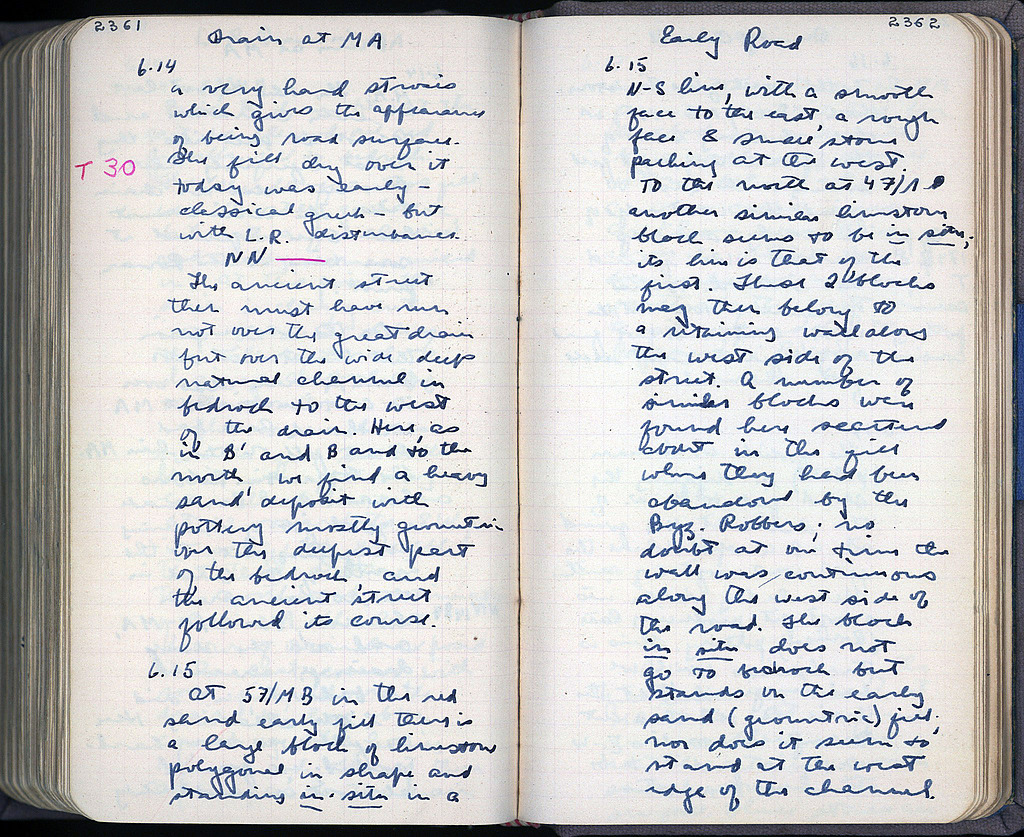 2361
Drain at MA
6.14
a very hard strosis
which gives the appearance
of being road surface.
T 30
The fill dug over it
today was early –
classical greek – but
with L.R. disturbance.
NN —
The ancient street
then must have run
not over the great drain
but over the wide deep
natural channel in
bedrock to the west
of the drain. Here, as
in B' and B and to the
north, we find a heavy
sand deposit with
pottery mostly geometric
over the deepest part
of the bedrock and
the ancient street
followed its course.
6.15
At 57/MB in the red
sand early fill there is
a large block of limestone
polygonal in shape and
standing in situ in a
2362
Early Road
6.15
N-S line, with a smooth
face to the east, a rough
face & small stone
packing at the west.
To the north at 47/
another similar limestone
block seems to be in situ;
its line is that of the
first. These 2 blocks
may then belong to
a retaining wall along
the west side of the
street. A number of
similar blocks were
found here scattered
about in the fill
where they had been
abandoned by the
Byz. Robbers; no
doubt at one time the
wall was continuous
along the west side of
the road. The block
in situ does not
go to bedrock but
stands on the early
sand (geometric) fill;
nor does it seem to
stand at the west
edge of the channel.